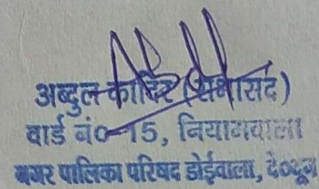 अब्दुल कादिर (सभासद)
वार्ड नं० 15, नियामवाला
नगर पालिका परिषद डोईवाला, दे०दून